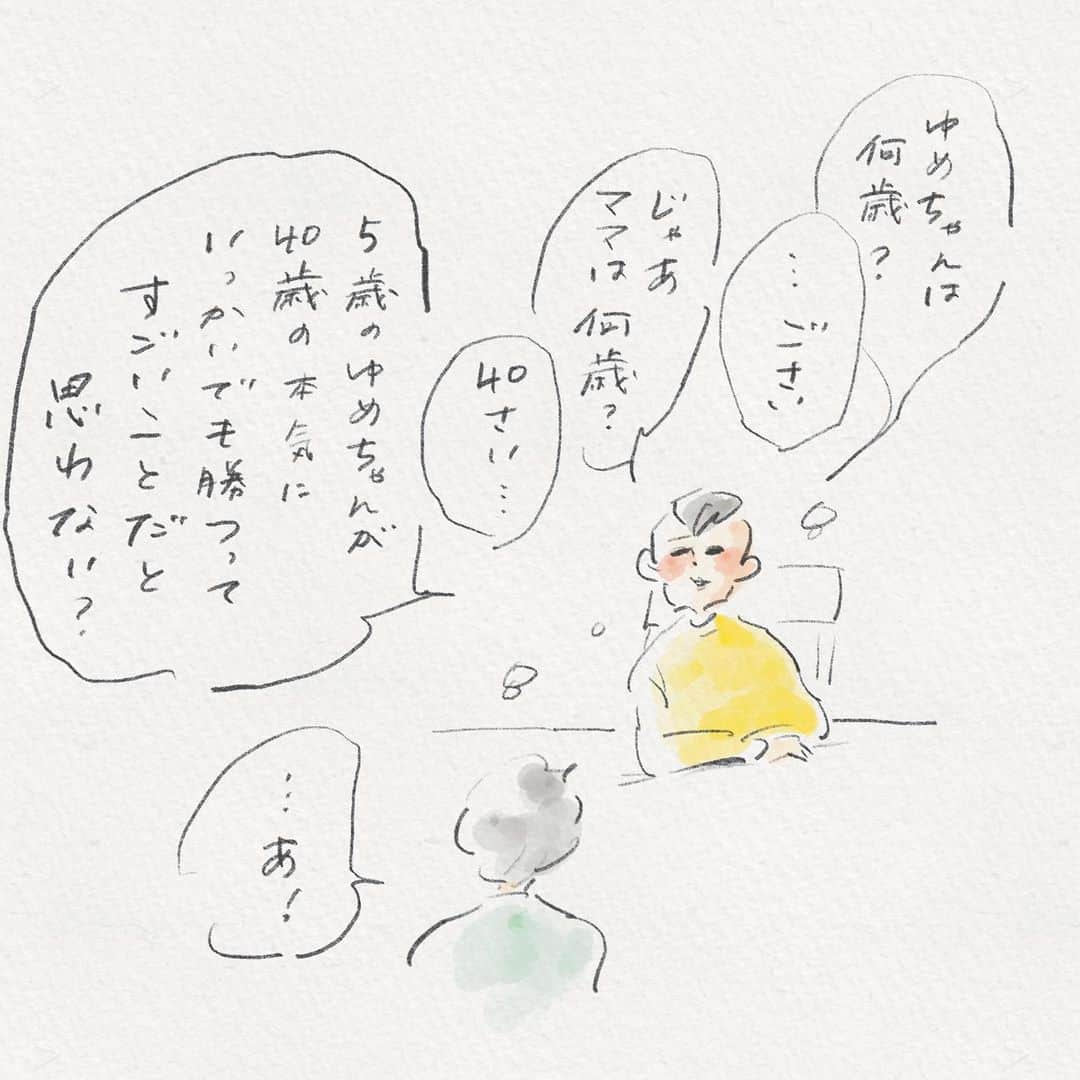 ゆめちゃんは
何歳?
…ごさい
じゃあ
ママは何歳?
40さい…
5歳のゆめちゃんが
40歳の本気に
いっかいでも勝つって
すごいことだと
思わない?
…あ!